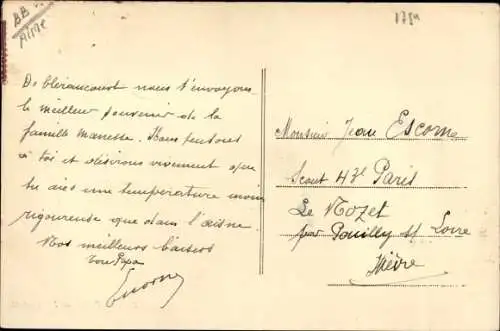 BB
Aisne
175n
De blérancourt nous t'envoyons
le meilleur souvenir de la
famille Manesse. Nous pensons
à toi et désirons vivement que
tu aies une température moins
rigoureuse que dans l'aisne.
Nos meilleurs baisers
Ton Papa
Monsieur Jean Escorne
Scout 43e Paris
Le Nozet
par Pouilly s/ Loire
Nièvre